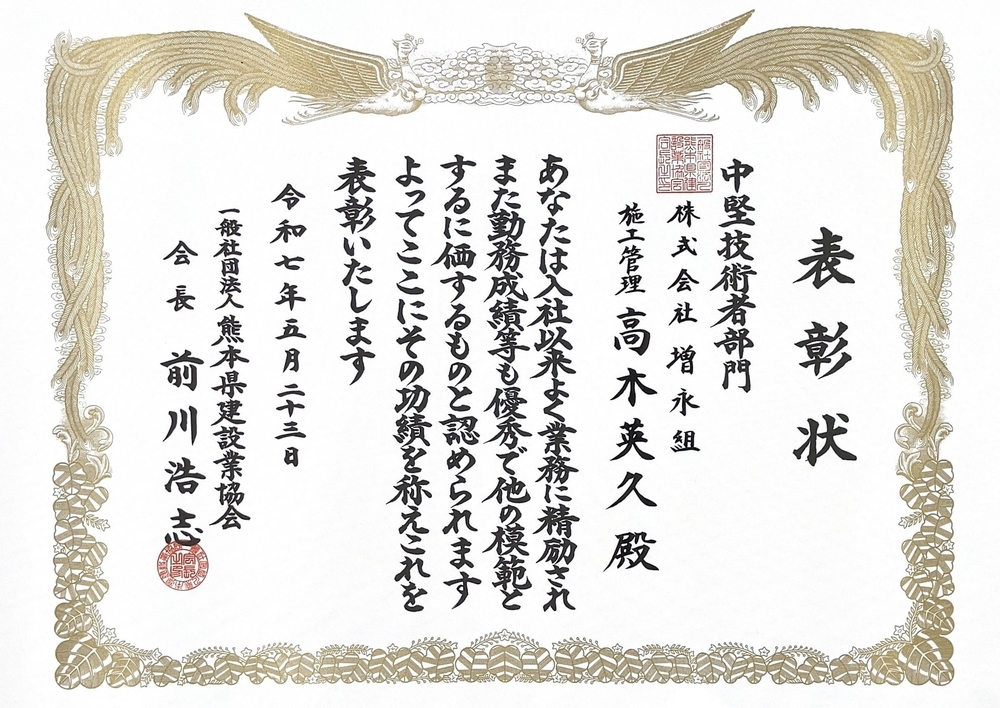 表彰状
中堅技術者部門
株式会社 増永組
施工管理 高木英久 殿
あなたは入社以来よく業務に精励され
また勤務成績等も優秀で他の模範と
するに価するものと認められます
よってここにその功績を称えこれを
表彰いたします
令和七年五月二十三日
一般社団法人 熊本県建設業協会
会長 前川浩志